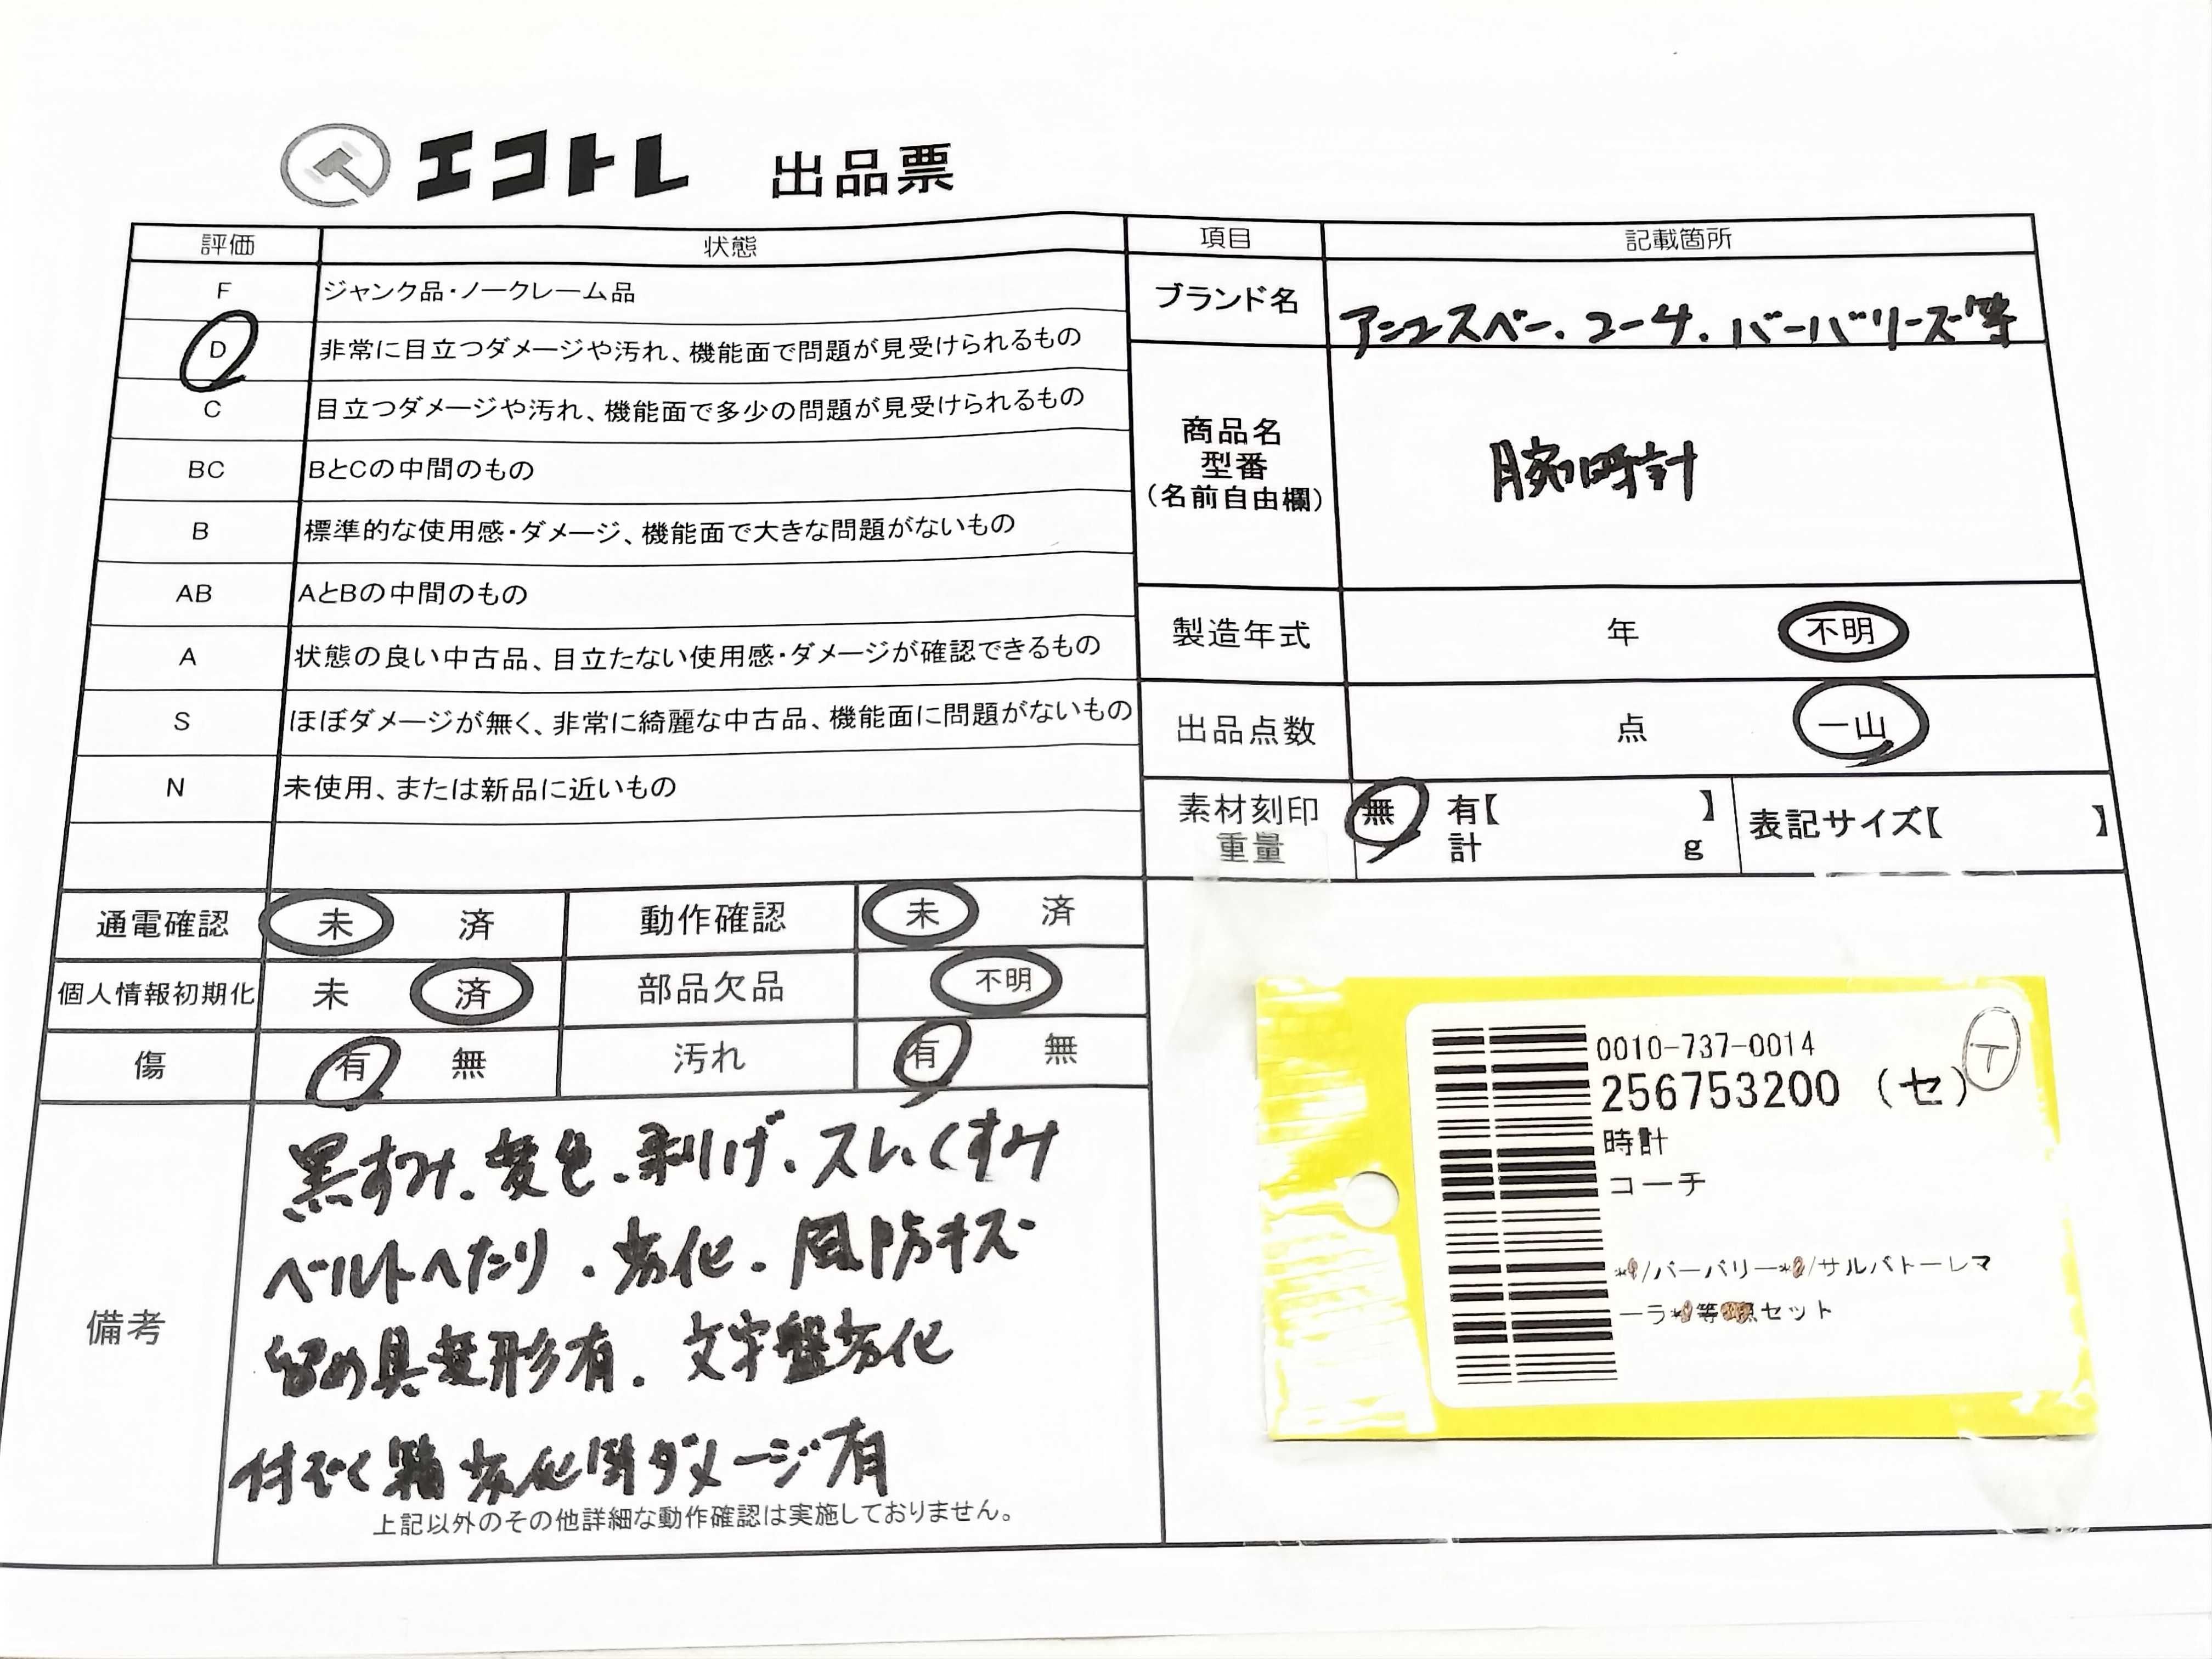 エコトレ 出品票
評価 状態 項目 記載箇所
F ジャンク品・ノークレーム品
D 非常に目立つダメージや汚れ、機能面で問題が見受けられるもの
C 目立つダメージや汚れ、機能面で多少の問題が見受けられるもの
BC BとCの中間のもの
B 標準的な使用感・ダメージ、機能面で大きな問題がないもの
AB AとBの中間のもの
A 状態の良い中古品、目立たない使用感・ダメージが確認できるもの
S ほぼダメージが無く、非常に綺麗な中古品、機能面に問題がないもの
N 未使用、または新品に近いもの
ブランド名 コーチ.バーバリーズ等
商品名
型番
(名前自由欄)
腕時計
製造年式 年 不明
出品点数 点 一山
素材刻印 無 有【 】 表記サイズ【 】
重量 計 g
通電確認 未 済 動作確認 未 済
個人情報初期化 未 済 部品欠品 不明
傷 有 無 汚れ 有 無
備考
黒ずみ.変色.剥げ.スレ.くすみ
ベルトへたり.劣化.風防キズ
留め具変形有.文字盤劣化
付ぞく箱劣化用ダメージ有
上記以外のその他詳細な動作確認は実施しておりません。
0010-737-0014
256753200 (セ)
時計
コーチ
/バーバリー*/サルバトーレマ
ーラ*等 セット